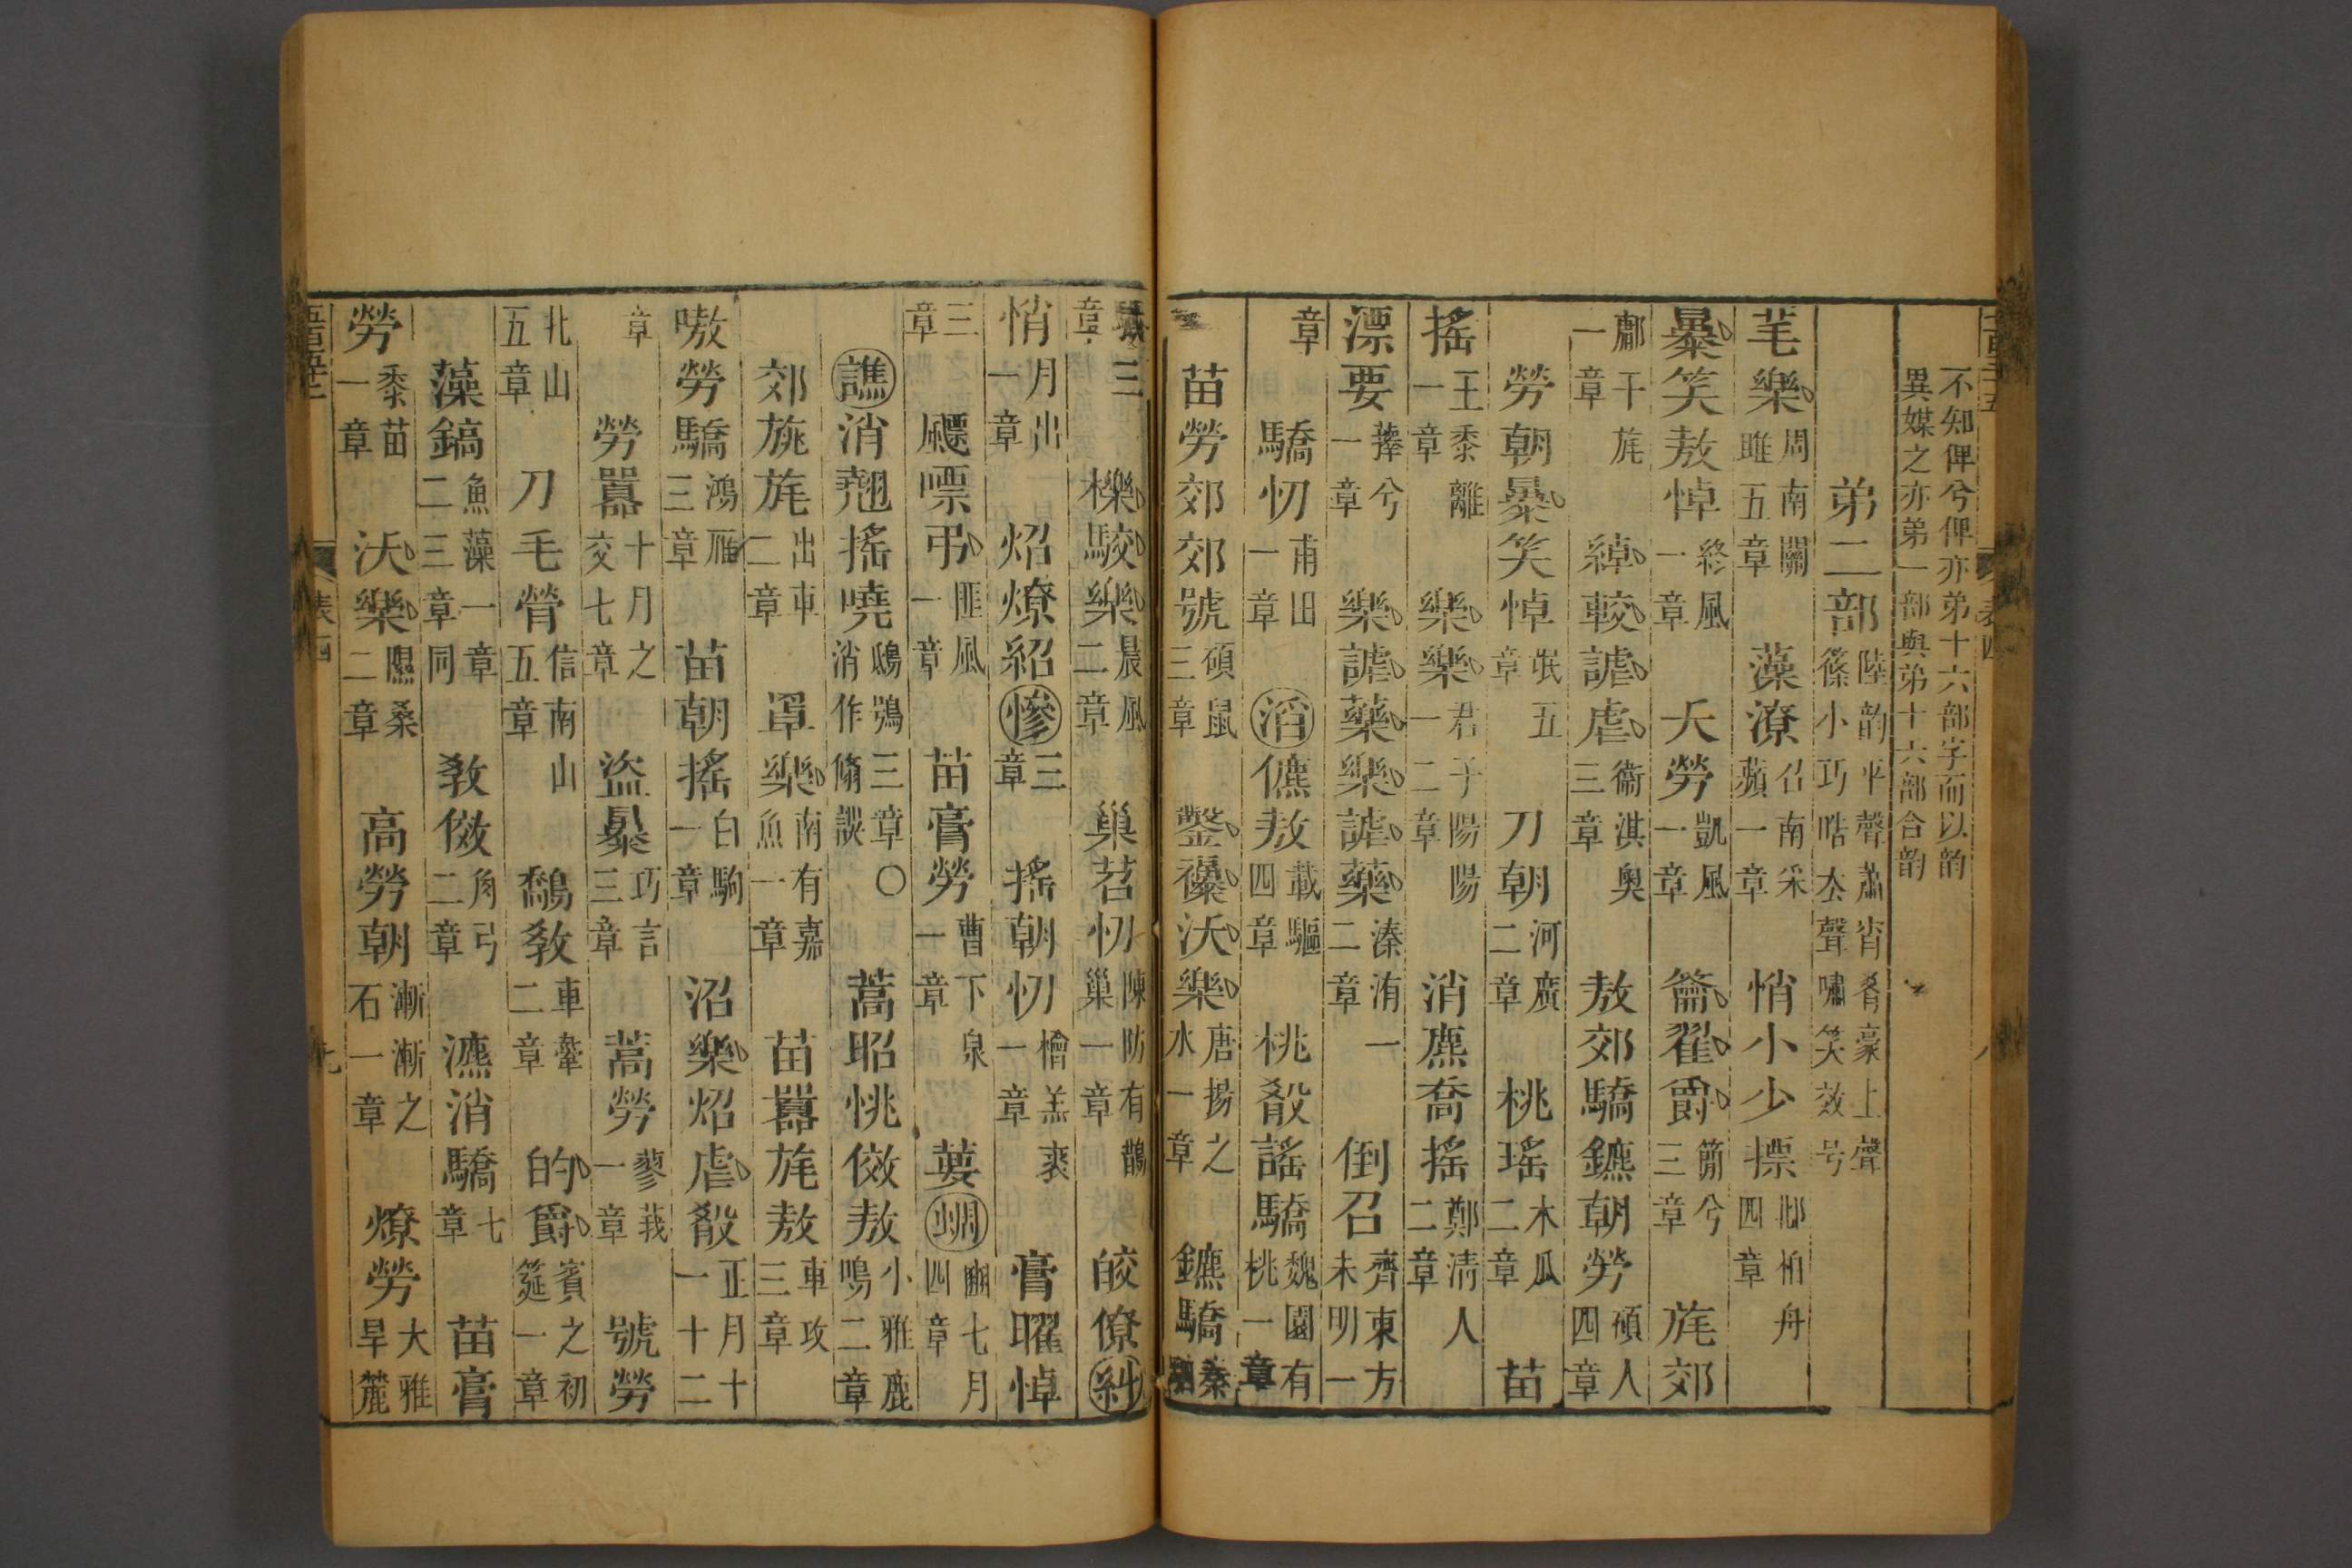 不知俾兮俾亦弟十六部字而以韵
異媒之亦弟一部與弟十六部合韵
弟二部陸韵平聲蕭宵肴豪上聲篠小巧晧去聲嘯笑效号
芼樂周南關雎五章 藻潦召南采蘋一章 悄小少摽邶柏舟四章
暴笑敖悼終風一章 夭勞凱風一章 籥翟爵簡兮三章 旄郊
鄘干旄一章 綽較謔虐衞淇奧三章 敖郊驕鑣朝勞碩人四章
勞朝暴笑悼氓五章 刀朝河廣二章 桃瑤木瓜二章 苗
搖王黍離一章 樂樂君子陽陽一二章 消麃喬搖鄭清人二章
漂要蘀兮二章 樂謔藥樂謔藥溱洧一二章 倒召齊東方未明一
章 驕忉甫田一章 滔儦敖載驅四章 桃殽謠驕魏園有桃一章
苗勞郊郊號碩鼠三章 鑿襮沃樂唐揚之水一章 鑣驕秦
三章 櫟駮樂晨風二章 巢苕忉陳防有鵲巢一章 皎僚糾
悄月出一章 炤燎紹慘三章 搖朝忉檜羔裘一章 膏曜悼
三章 飄嘌弔匪風一章 苗膏勞曹下泉一章 葽蜩豳七月四章
譙消翹搖嘵鴟鴞三章○消作翛誤 蒿昭恌傚敖小雅鹿鳴二章
郊旐旄出車二章 罩樂南有嘉魚一章 苗囂旄敖車攻三章
嗷勞驕鴻雁三章 苗朝搖白駒一章 沼樂炤虐殽正月十一十二
章 勞囂十月之交七章 盜暴巧言三章 蒿勞蓼莪一章 號勞
北山五章 刀毛膋信南山五章 鷮敎車舝二章 的爵賓之初筵一章
藻鎬魚藻一章二三章同 敎傚角弓二章 瀌消驕七章 苗膏
勞黍苗一章 沃樂隰桑二章 高勞朝漸漸之石一章 燎勞大雅旱麓